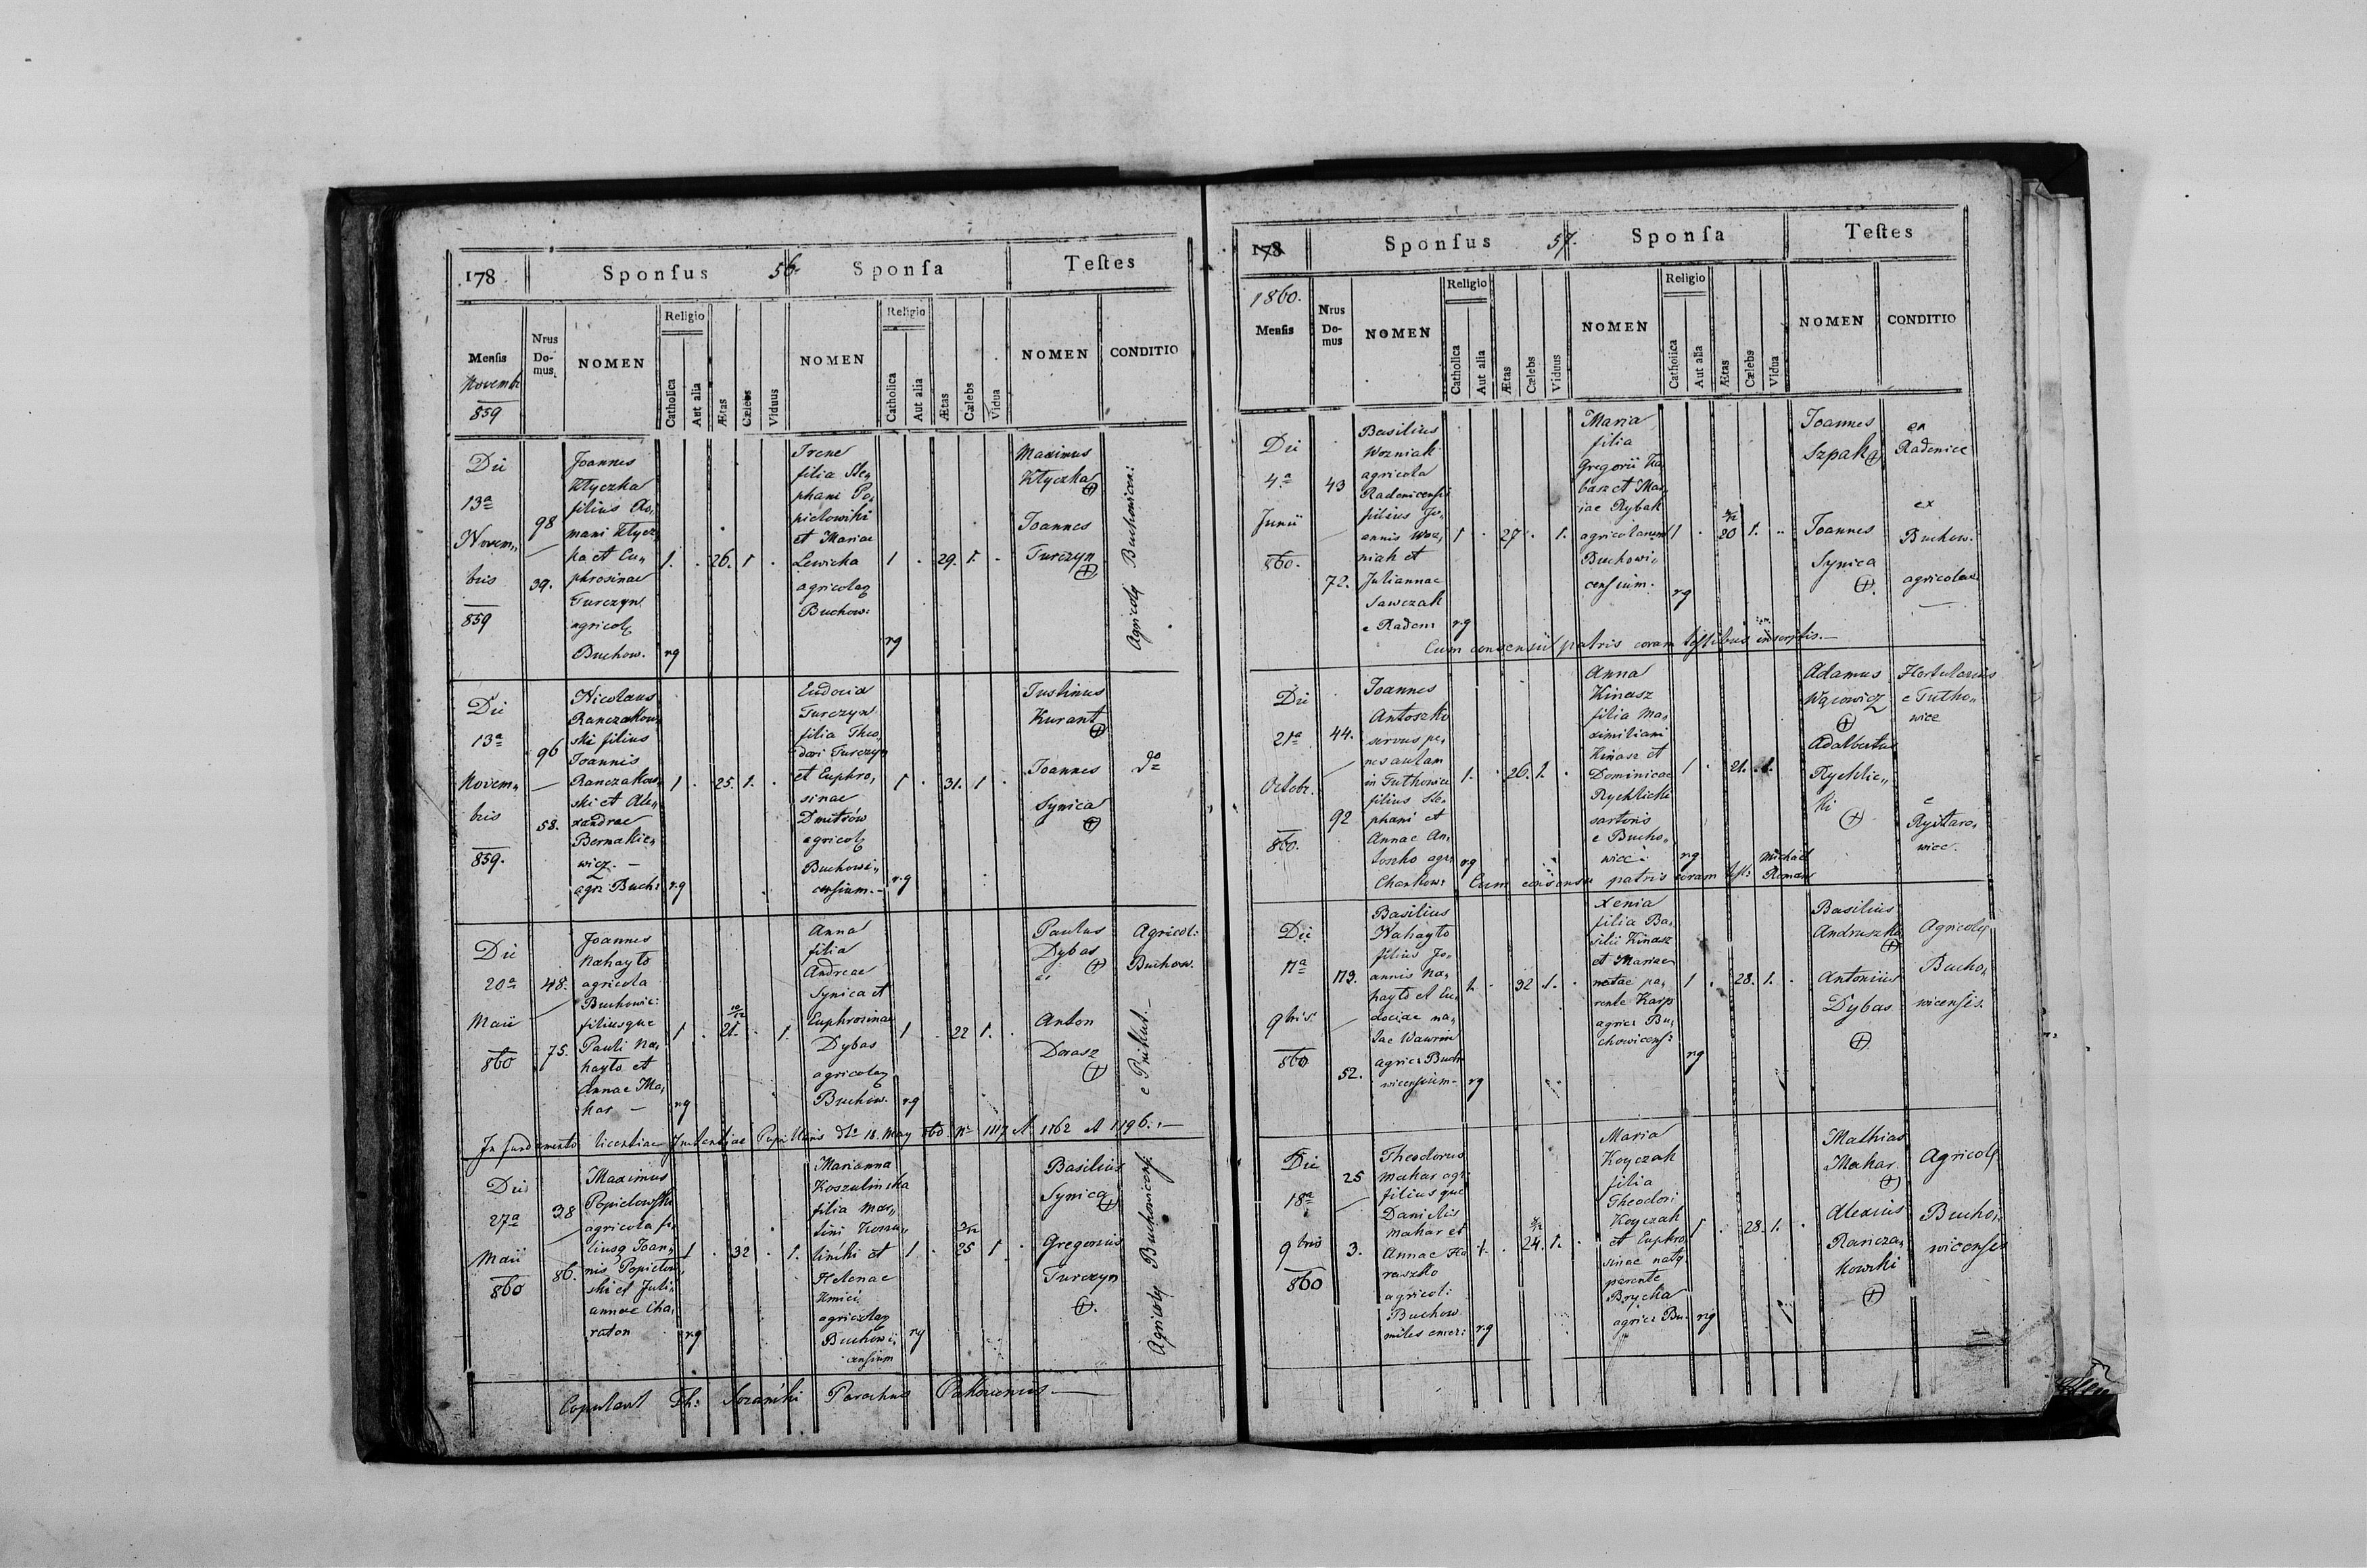 178 Sponsus 56. Sponsa Testes
Mensis Novemb. 859 Nrus Domus NOMEN Religio Catholica Aut alia Ætas Cælebs Viduus NOMEN Religio Catholica Aut alia Ætas Cælebs Vidua NOMEN CONDITIO
Die
13ª
Novem„
bris
859
98
39.
Joannes
Klyczka
filius Ro„
mani Klycz„
ka et Eu„
phrosinae
Turczyn
agricol
Buchow.
rg
1. . 26. 1 .
Irene
filia Ste„
phani Po„
pielowski
et Mariae
Lewicka
agricolar
Buchow:
rg
1 . 29. 1. .
Maximus
Klyczka
Joannes
Turczyn
Agricol Buchowicen:
Die
13ª
Novem„
bris
859.
96
58.
Nicolaus
Ranczakow„
ski filius
Joannis
Ranczakow„
ski et Ale„
xandrae
Bernakie„
wicz. —
agr: Buch:
rg
1 . 25. 1. .
Eudocia
Turczyn
filia Theo„
dori Turczyn
et Euphro„
sinae
Dmitrów
agricol
Buchowi„
censium. -
rg
1 . 31. 1 .
Justinus
Kurant
Joannes
Synica
do
Die
20ª
Maii
860
48.
75.
Joannes
Nahayło
agricola
Buchowic:
filiusque
Pauli Na„
hayło et
Annae Ma„
har —
rg
1 . 10/12 21. . 1.
Anna
filia
Andreae
Synica et
Euphrosinae
Dybas
agricolar
Buchow.
rg
1 . 22 1. .
Paulus
Dybas
Anton
Dorasz
Agricol:
Buchow.
e Prikłut. —
In fundamento licentiae Instantiae Pupillaris dto 18. May 860. No 1117 et 1162 et 1196. —
Die
27ª
Maii
860
38
86.
Maximus
Popielowski
agricola fi„
liusq Joan„
nis Popielow„
ski et Juli„
annae Cha„
raton
rg
1 . 32 . 1.
Marianna
Koszulinska
filia Mar„
tini Koszu„
linski et
Helenae
Kmici
agricolar
Buchowi„
censium
rg
1 . 25 1 .
Basilius
Synica
Gregorius
Turczyn
Agricol Buchowicens.
Copulavit Th: Sozański Parochus
178 Sponsus 57. Sponsa Testes
1860. Mensis Nrus Domus NOMEN Religio Catholica Aut alia Ætas Cælebs Viduus NOMEN Religio Catholica Aut alia Ætas Cælebs Vidua NOMEN CONDITIO
Die
4ª
Junii
860.
43
72.
Basilius
Wozniak
agricola
Radenicensis
filius Jo„
annis Woz„
niak et
Juliannae
Sawczak
e Raden:
rg
1 . 27 . 1.
Maria
filia
Gregorii Ka„
basz et Mar„
iae Rybak
agricolarum
Buchowi„
censium.
rg
1 . 20 1. ..
Joannes
Szpak
Joannes
Synica
ex
Radenice
ex
Buchow.
agricolae
Cum consensu patris coram testibus inscriptis. —
Die
21ª
Octobr.
860.
44.
92
Joannes
Antoszko
servus pe„
nes aulam
in Tutkowice
filius Ste„
phani et
Annae An„
toszko agr:
Chankow:
rg
1. . 26. 1. .
Anna
Kinasz
filia Ma„
ximiliani
Kinasz et
Dominicae
Rychlicki
sartoris
e Bucho„
wice.
rg
1 . 21. . 1.
Adamus
Wącowicz
Adalbertus
Rychlic„
ki
Hortulanus
e Tutko„
wice
e
Rystaro„
wice.
Cum consensu patris coram test: Michael Roman
Die
11ª
9bris
860
113.
52.
Basilius
Nahayło
filius Jo„
annis Na„
hayło et Eu„
dociae na„
tae Wawrin
agric: Bucho
wicensium.
rg
1. . 32 1. .
Xenia
filia Ba„
silii Kinasz
et Mariae
natae pa„
rente Karp
agric: Bu„
chowicens:
rg
1 . 28. 1. .
Basilius
Andruszko
Antonius
Dybas
Agricol
Bucho„
wicensis.
Die
18ª
9bris
860
25
3.
Theodorus
Mahar agr:
filiusque
Danielis
Mahar et
Annae Ha
raszko
agricol:
Buchow.
miles emer:
rg
1. . 24. 1. .
Maria
Koyczak
filia
Theodori
Koyczak
et Euphro„
sinae nata
parente
Brycka
agric: Bu.
rg
1 . 28. 1. .
Mathias
Mahar
Alexius
Rancza„
kowski
Agricol
Bucho„
wicenses